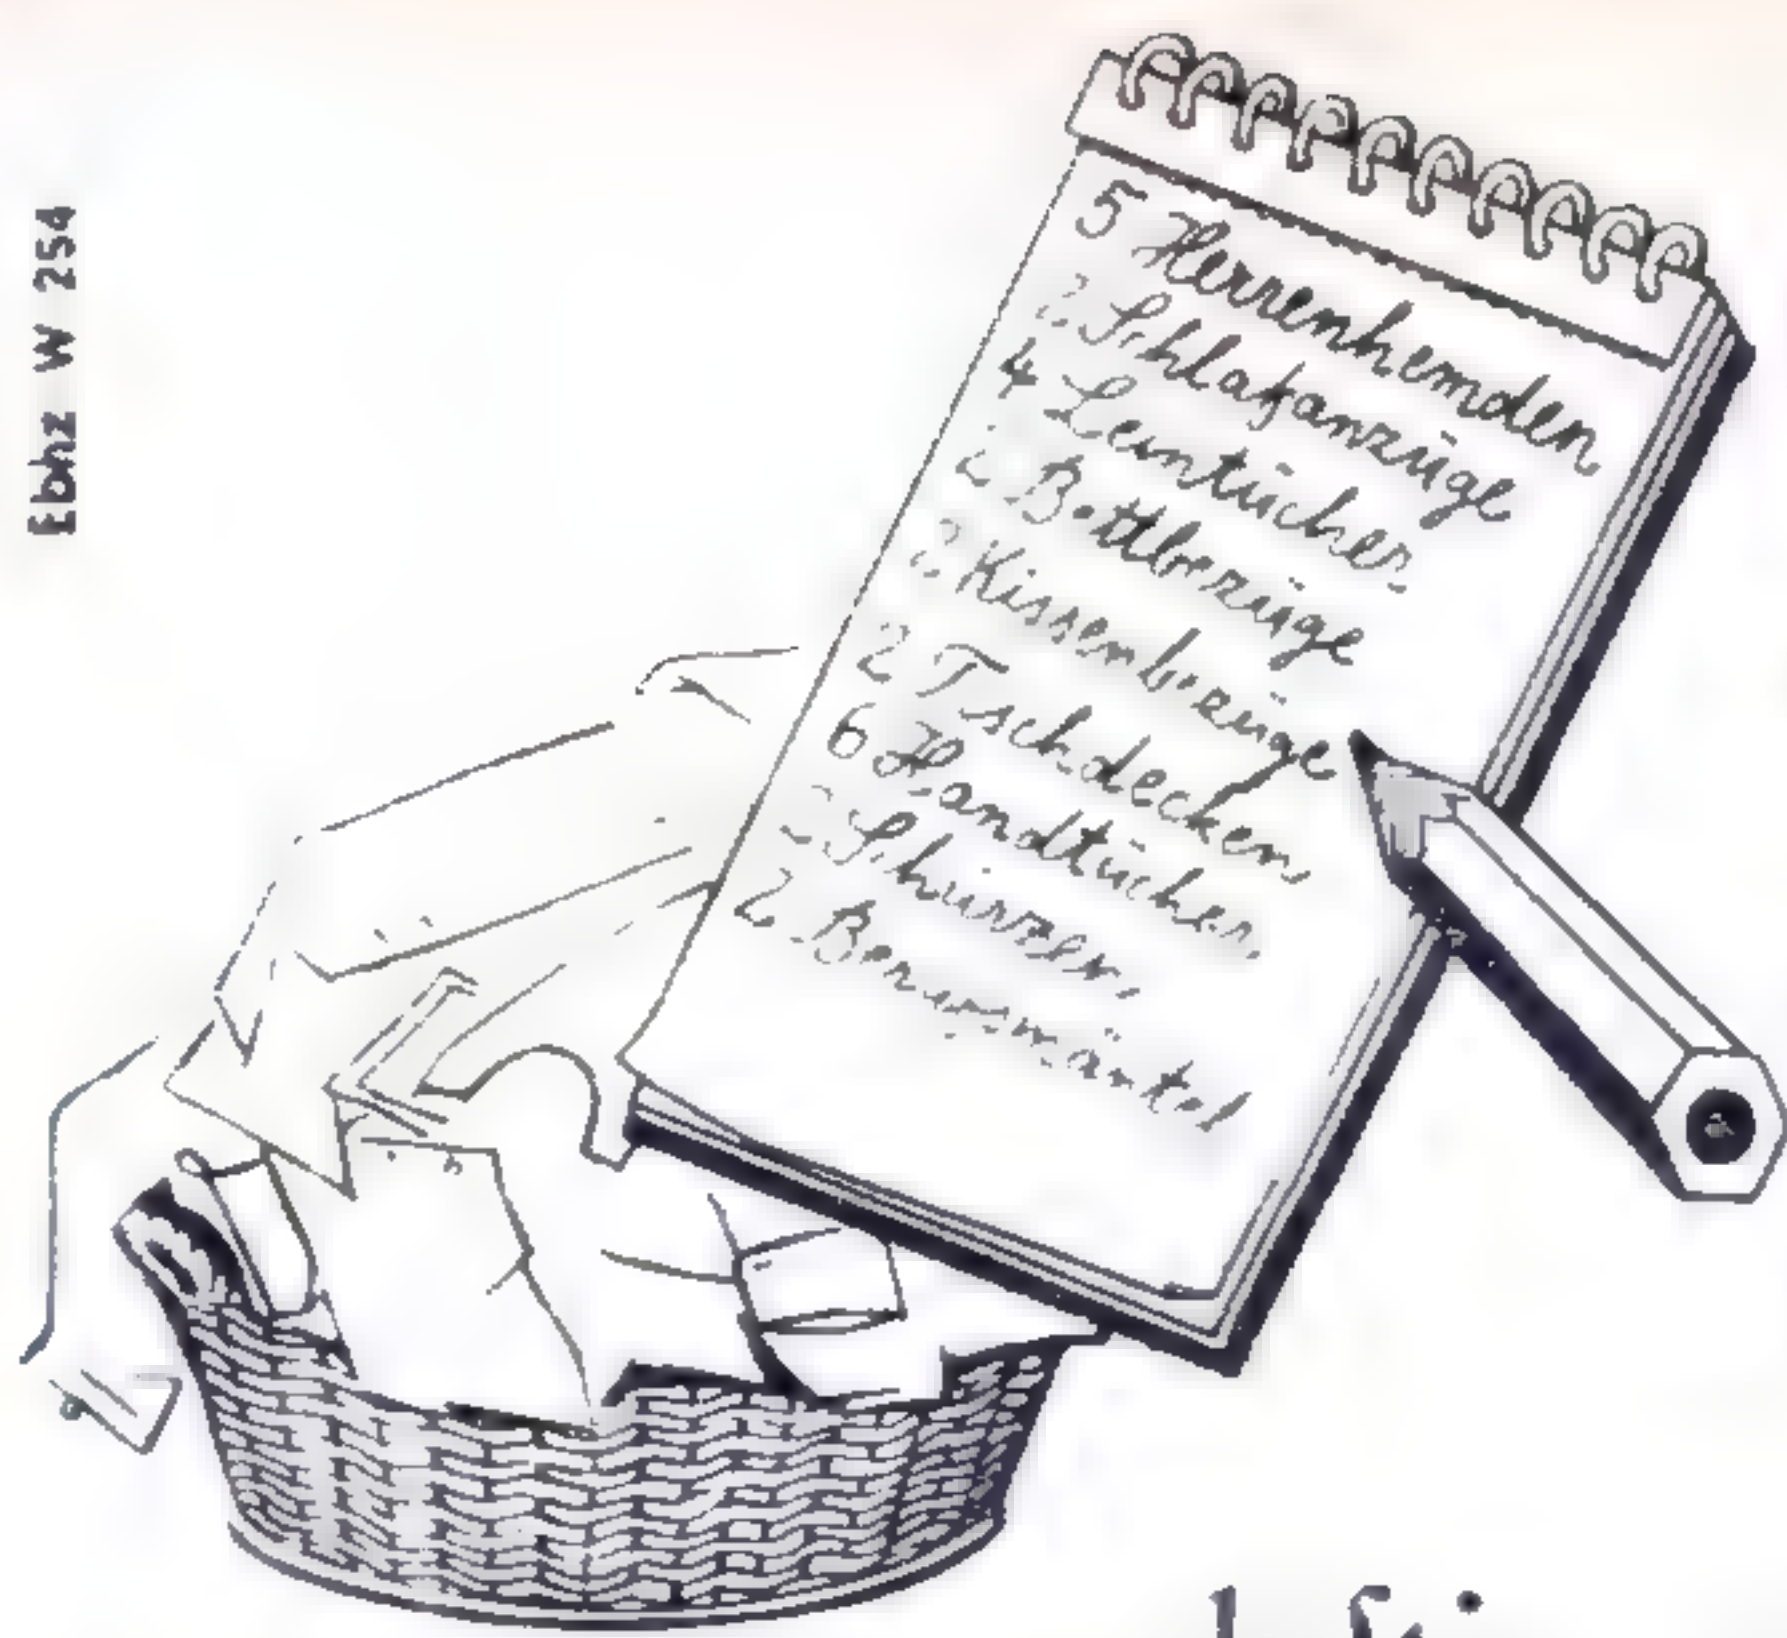 Ebhz W 254
5 Herrenhemden
2 Schlafanzüge
4 Leintücher
2 Bettbezüge
2 Kissenbezüge
2 Tischdecken
6 Handtücher
2 Schürzen
2 Berufsmäntel